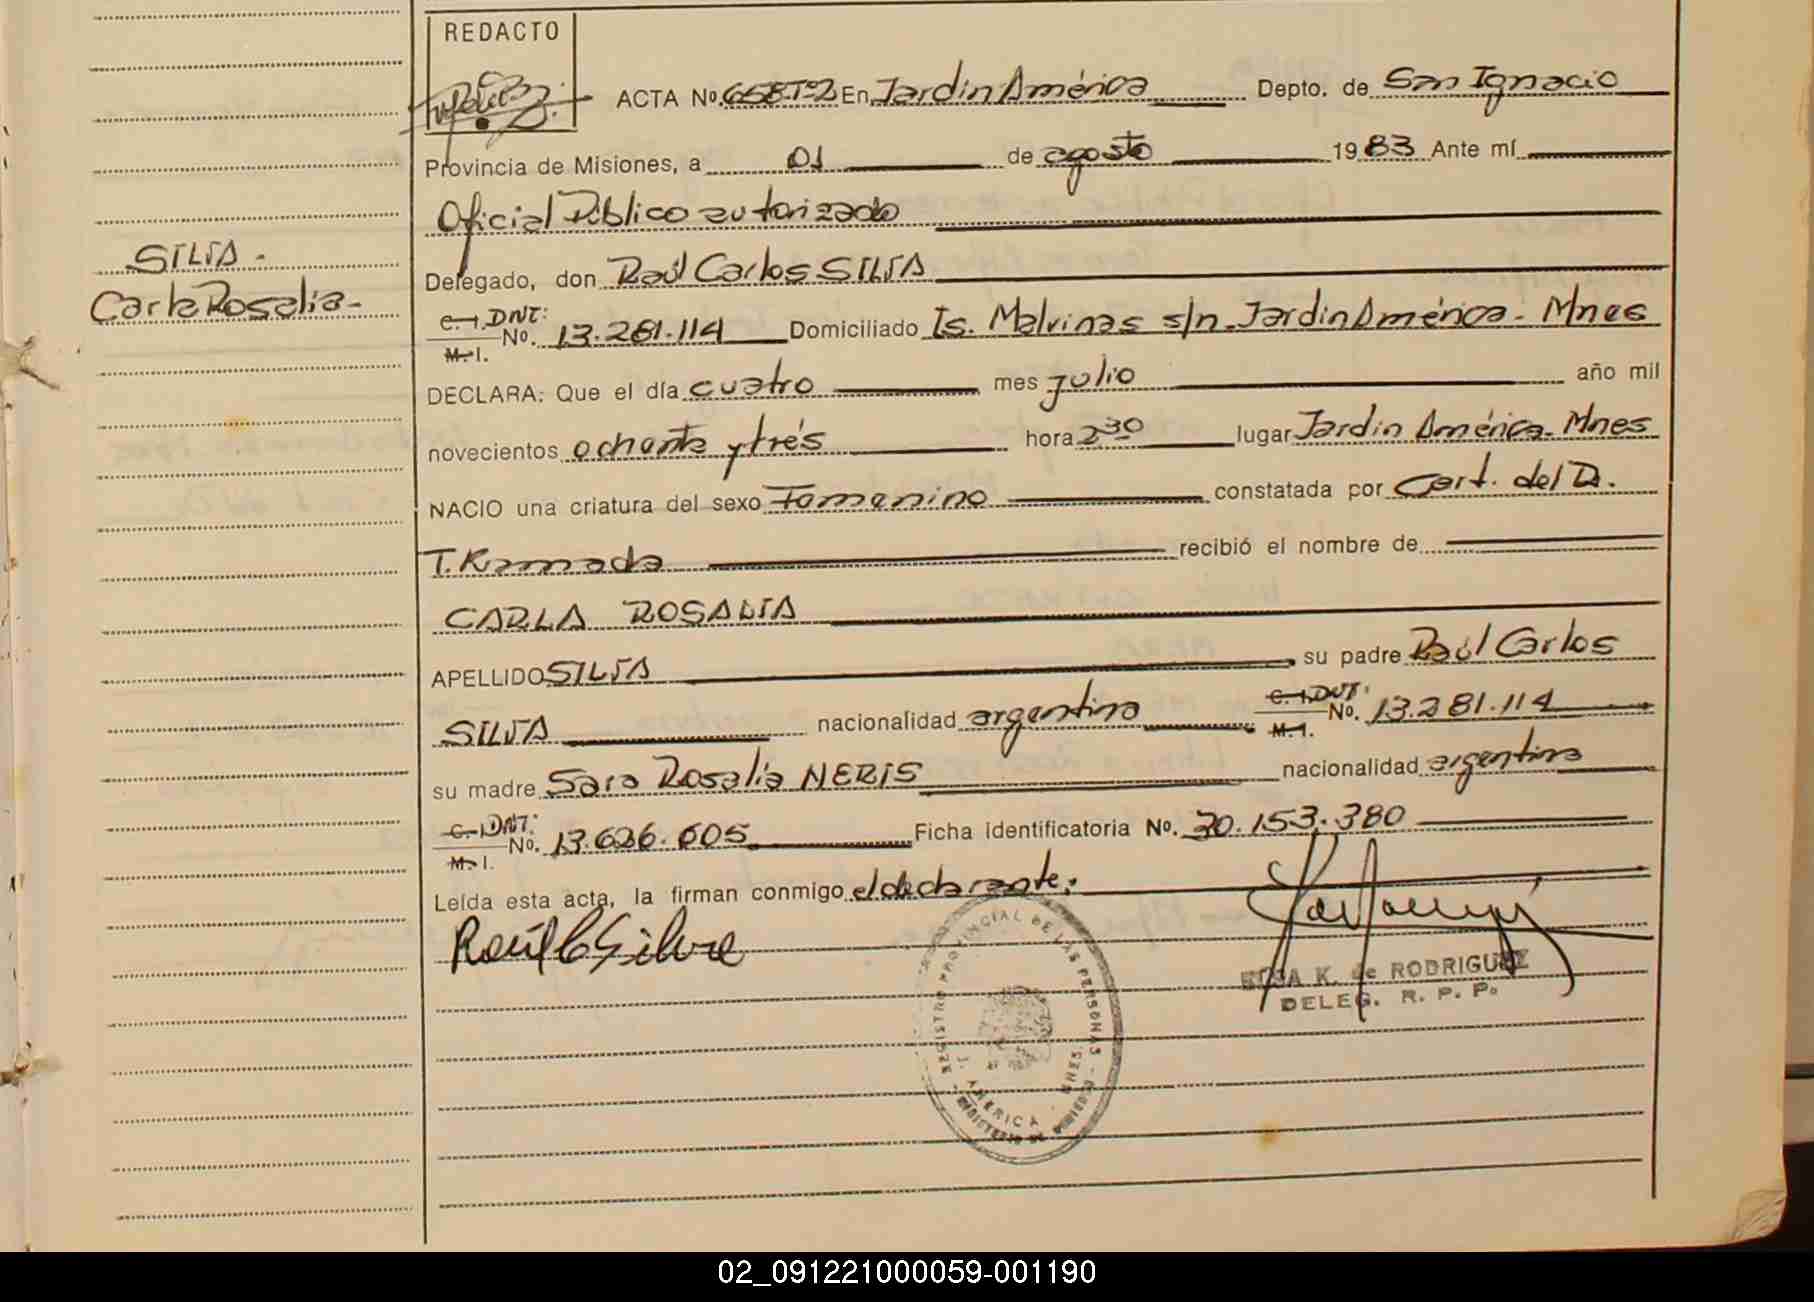 REDACTO
ACTA No. 658-Tº2 En Jardin América Depto. de San Ignacio
Provincia de Misiones, a 01 de agosto 1983 Ante mí
Oficial Público autorizado
SILVA.
Delegado, don Raúl Carlos SILVA
Carla Rosalia-
C. I. DNI:
No. 13.281.114 Domiciliado Is. Malvinas s/n. Jardin América - Mnes
M. I.
DECLARA: Que el día cuatro mes julio año mil
novecientos ochenta y trés hora 2 30 lugar Jardin América - Mnes
NACIO una criatura del sexo Femenino constatada por Cert. del D.
T. Ramada recibió el nombre de
CARLA ROSALIA
APELLIDO SILVA su padre Raúl Carlos
SILVA nacionalidad argentina C. I. DNI: No. 13.281.114
M. I.
su madre Sara Rosalia NERIS nacionalidad argentina
C. I. DNI:
No. 13.626.605 Ficha identificatoria No. 30.153.380
M. I.
Leída esta acta, la firman conmigo el declarante;
Raúl C Silva
REGISTRO PROVINCIAL DE LAS PERSONAS
J. AMERICA - MNES
MINISTERIO DE GOBIERNO
ELSA K. de RODRIGUEZ
DELEG. R. P. P.
02_091221000059-001190